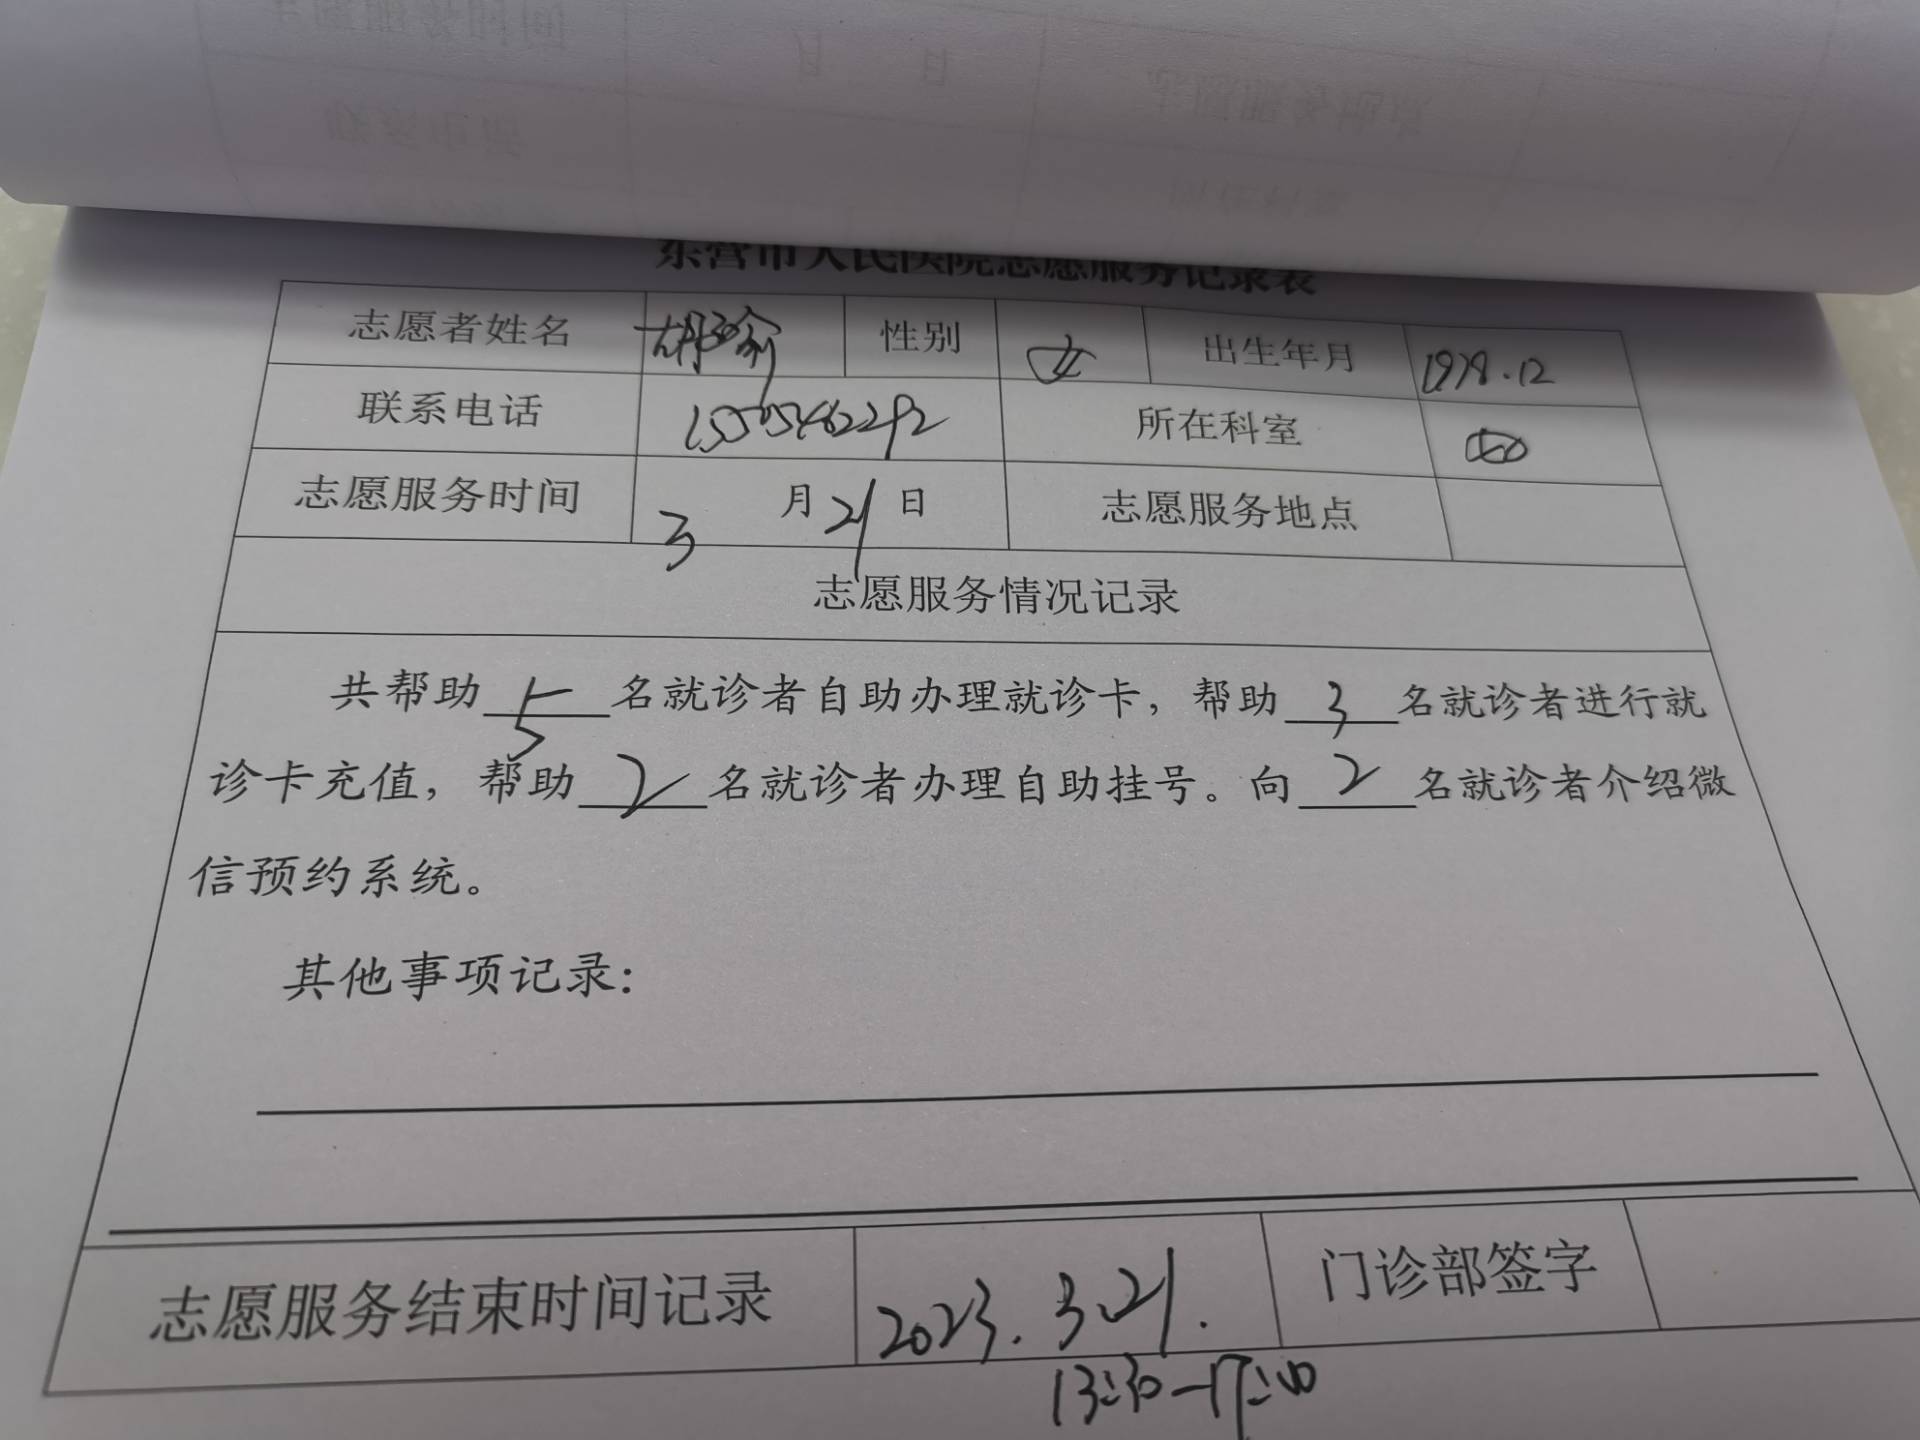 东营市人民医院志愿服务记录表
志愿者姓名 性别 女 出生年月 1978.12
联系电话 15505462292 所在科室
志愿服务时间 3月21日 志愿服务地点
志愿服务情况记录
共帮助5名就诊者自助办理就诊卡，帮助3名就诊者进行就
诊卡充值，帮助2名就诊者办理自助挂号。向2名就诊者介绍微
信预约系统。
其他事项记录：
志愿服务结束时间记录 2023.3.21. 门诊部签字
13:30-17:00